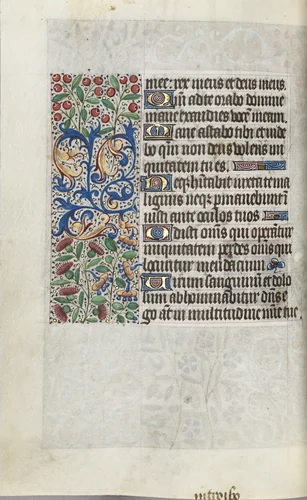 mee: rex meus et deus meus.
Qm̄ ad te orabo domine
mane exaudies vocē meam.
Mane astabo tibi et vide
bo qm̄ non deus volens in
iquitatem tu es.
Neq; hītabit iuxta te ma
lignus neq; pmanebunt
iusti ante oculos tuos
Odisti omēs qui operātur
iniquitatem perdes omēs qui
loquūtur mendacium
Virum sanguinū et dolo
sum abhominabitur dn̄s e
go aūt in multitudine mīe tue.
introibo